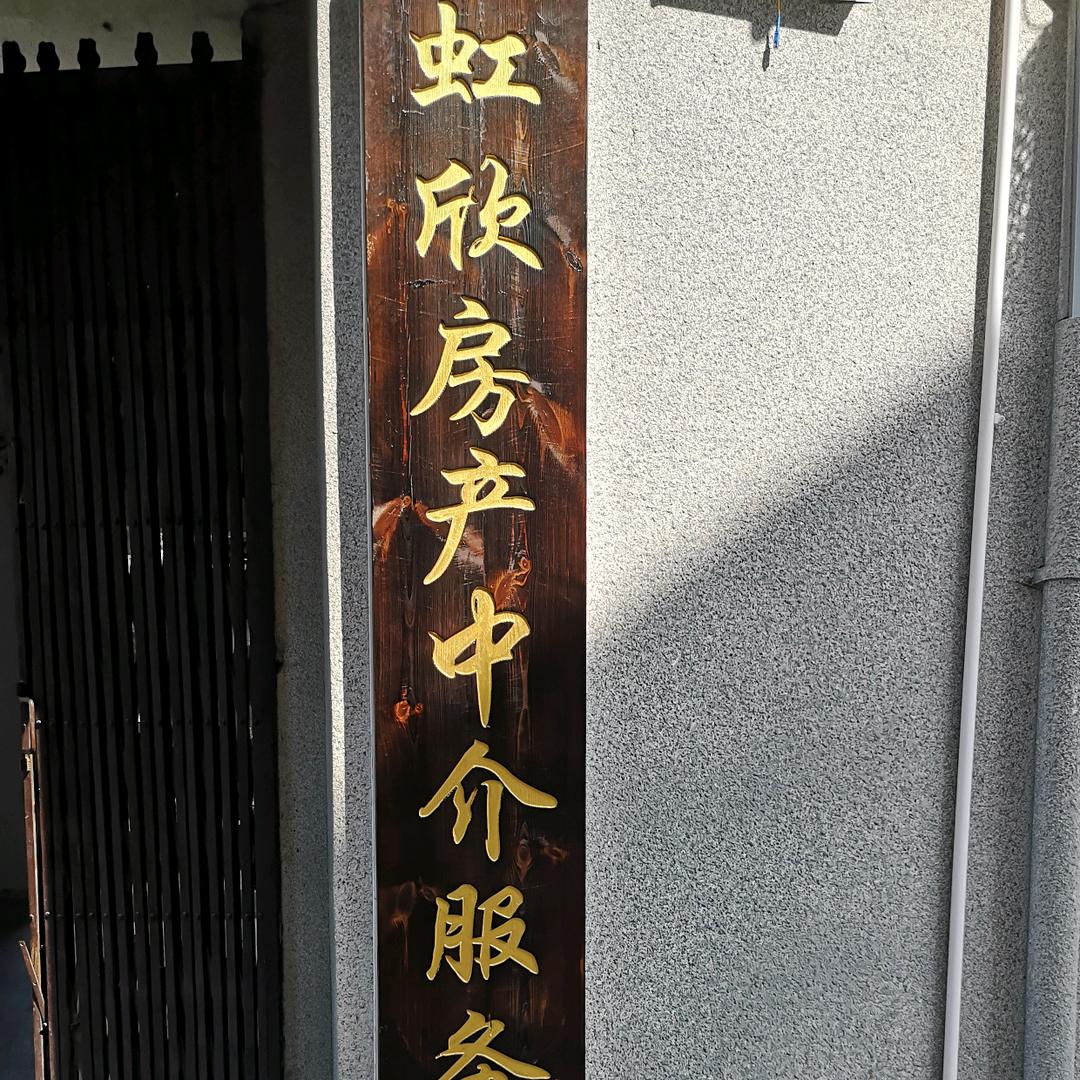 虹欣房产中介服务